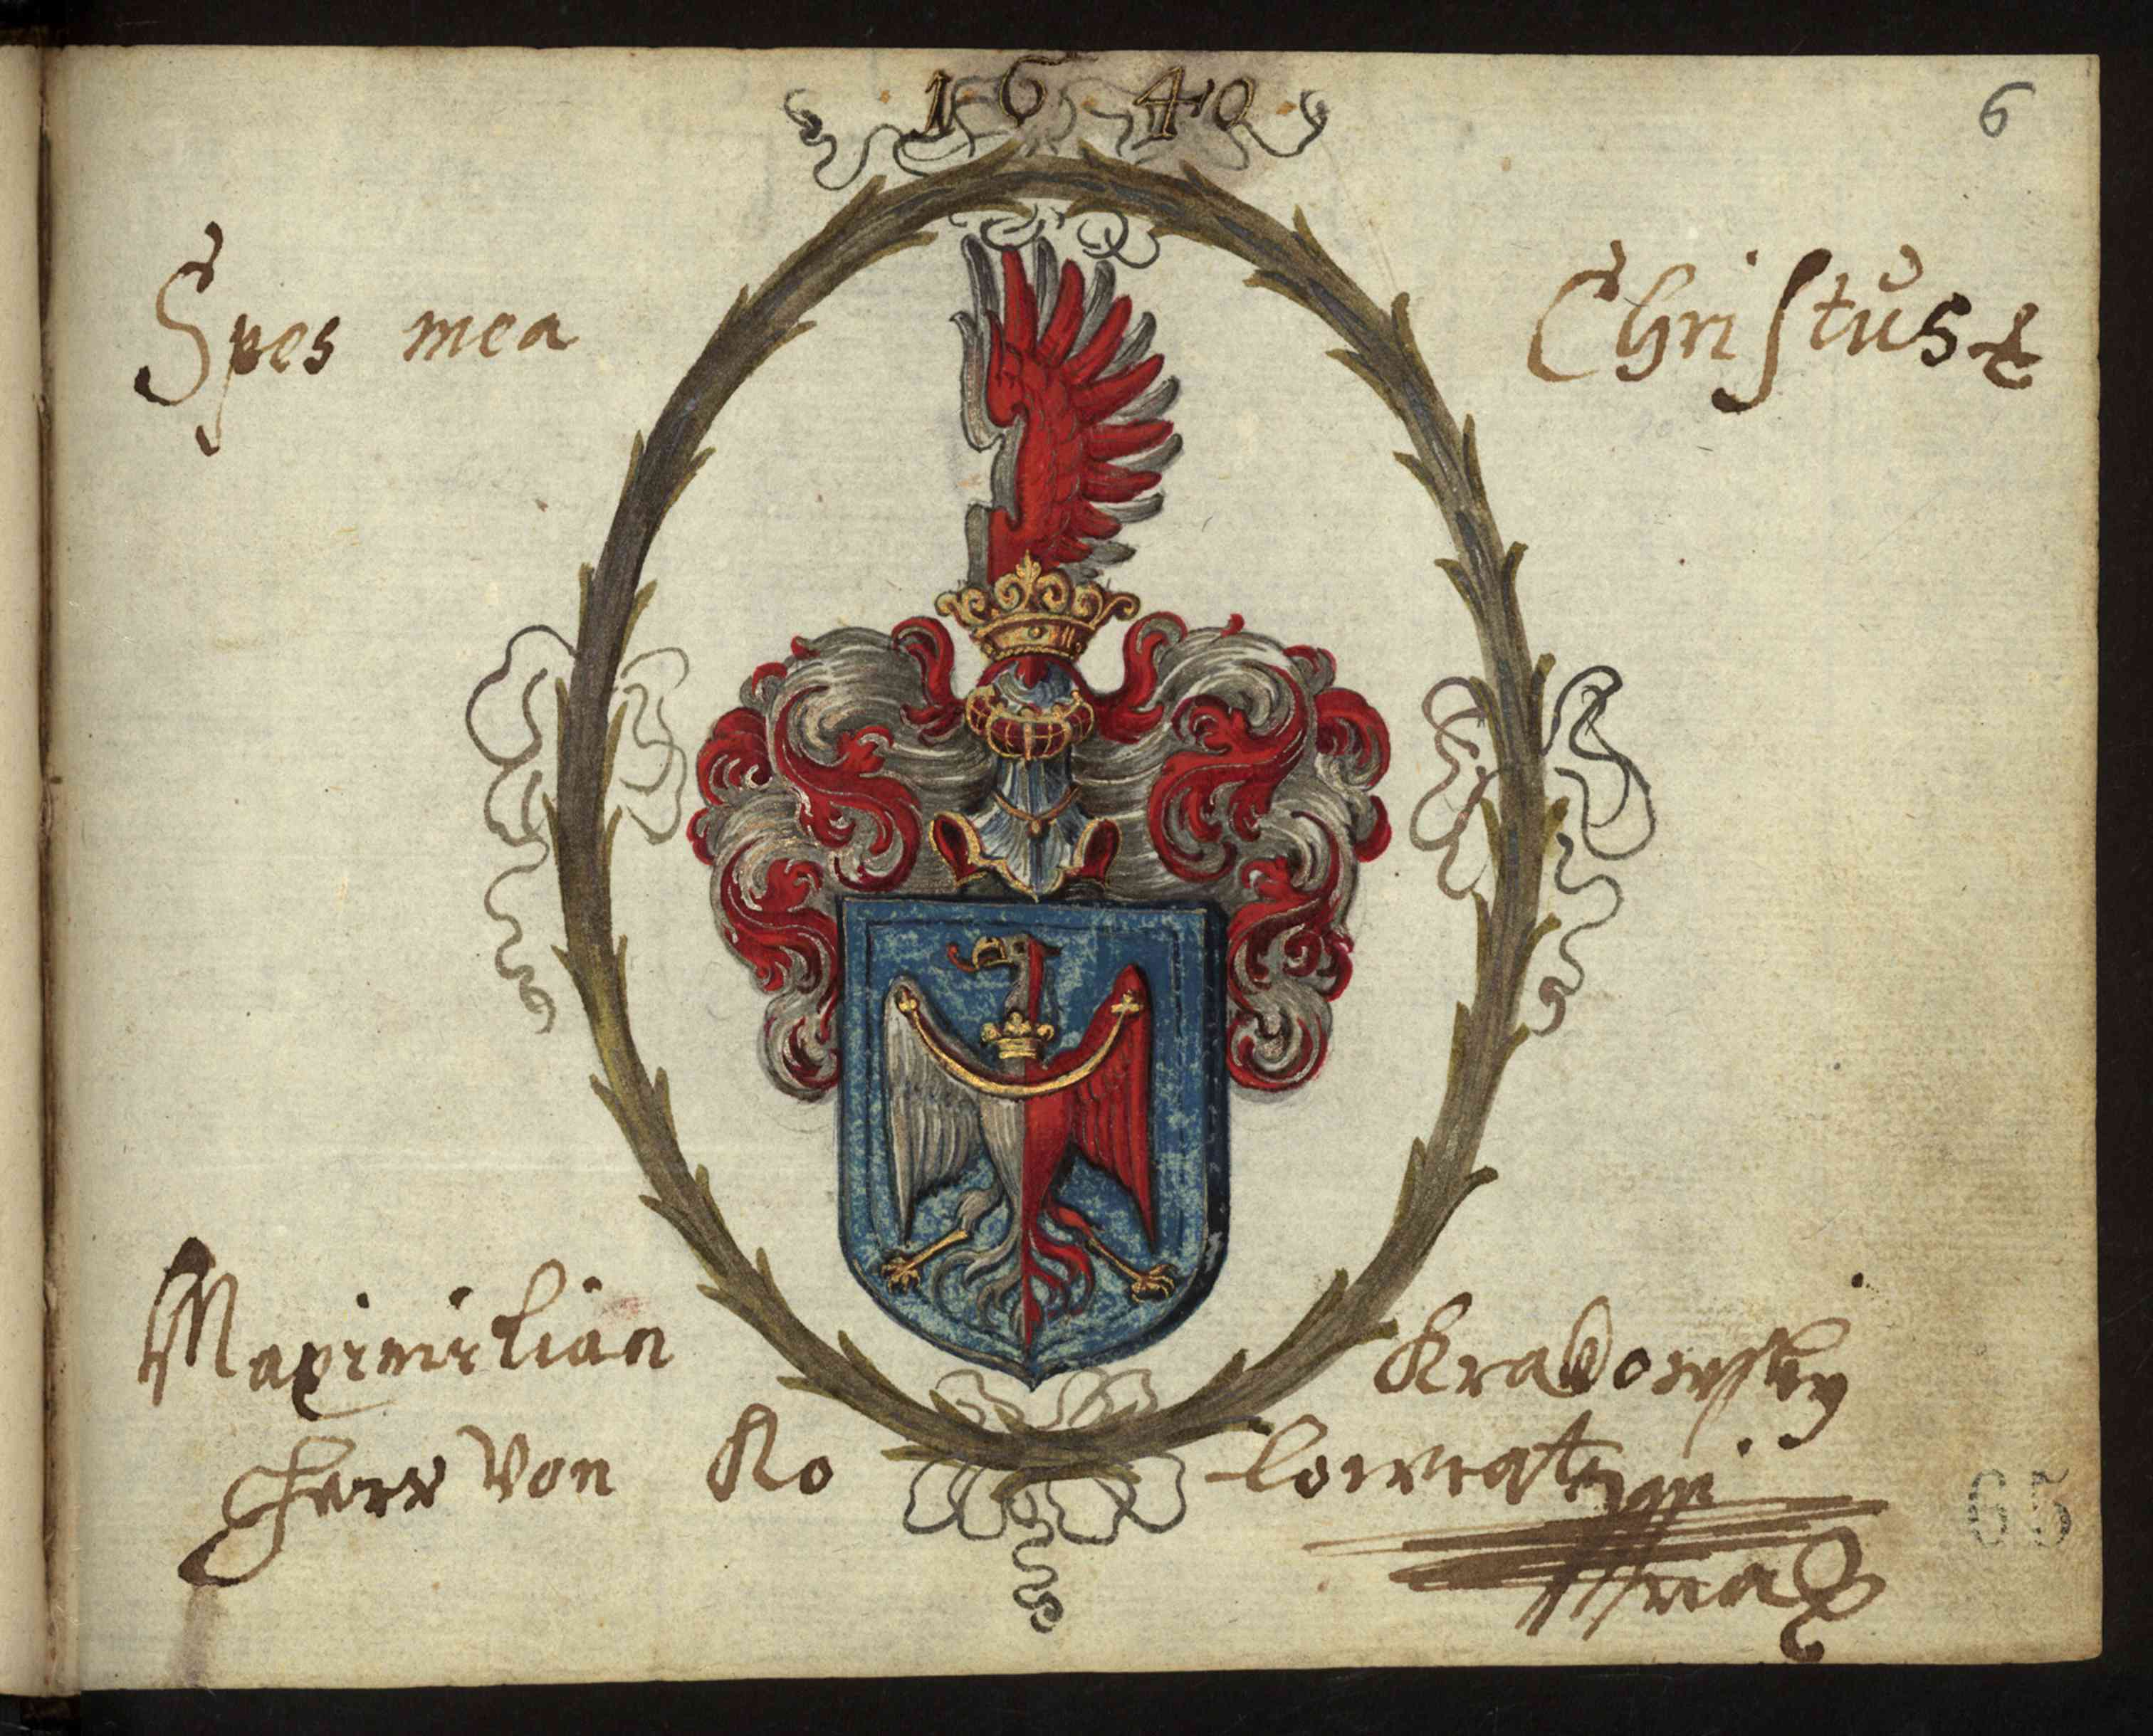 1640
6
Spes mea Christus
Maximilian Krakowsky
Herr von Kolowrat
65